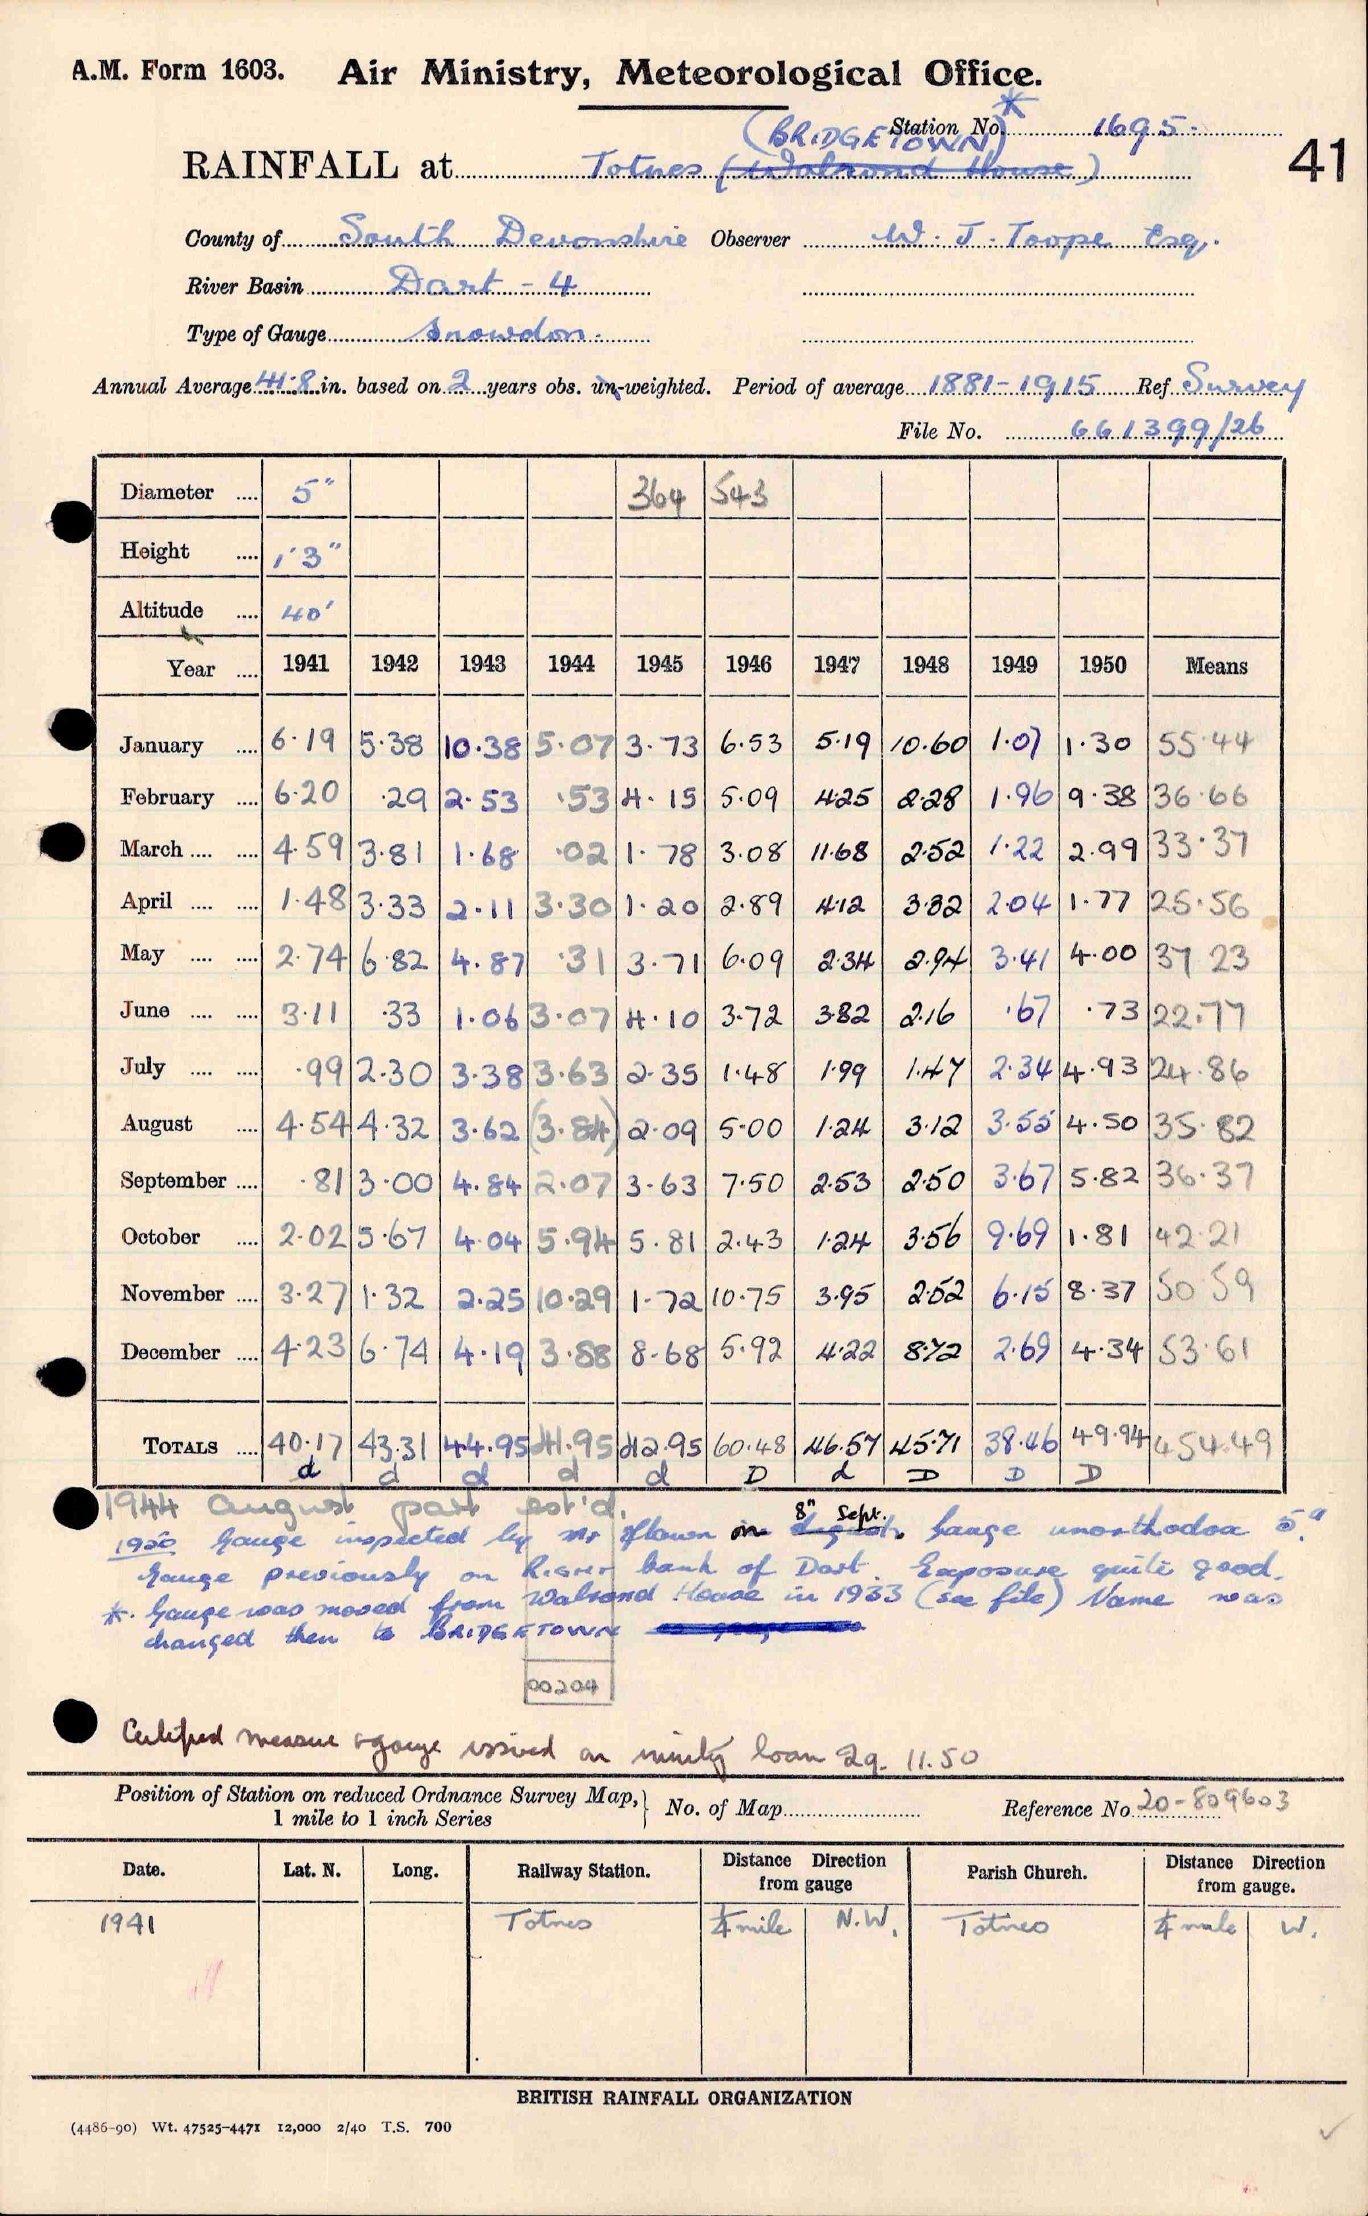 A.M. Form 1603. Air Ministry, Meteorological Office.
Station No. 1695.
41
(BRIDGETOWN)*
RAINFALL at Totnes (Walrond House)
County of South Devonshire Observer W. J. Toope Esq.
River Basin Dart - 4
Type of Gauge Snowdon.
Annual Average 41.8 in. based on 2 years obs. un-weighted. Period of average 1881-1915 Ref. Survey
File No. 661399/26
Diameter .... 5" 364 543
Height .... 1'3"
Altitude .... 40'
Year .... 1941 1942 1943 1944 1945 1946 1947 1948 1949 1950 Means
January .... 6.19 5.38 10.38 5.07 3.73 6.53 5.19 10.60 1.07 1.30 55.44
February .... 6.20 .29 2.53 .53 4.15 5.09 4.25 2.28 1.96 9.38 36.66
March .... .... 4.59 3.81 1.68 .02 1.78 3.08 11.68 2.52 1.22 2.99 33.37
April .... .... 1.48 3.33 2.11 3.30 1.20 2.89 4.12 3.32 2.04 1.77 25.56
May .... .... 2.74 6.82 4.87 .31 3.71 6.09 2.34 2.94 3.41 4.00 37 23
June .... .... 3.11 .33 1.06 3.07 4.10 3.72 3.82 2.16 .67 .73 22.77
July .... .... .99 2.30 3.38 3.63 2.35 1.48 1.99 1.47 2.34 4.93 24.86
August .... 4.54 4.32 3.62 (3.84) 2.09 5.00 1.24 3.12 3.55 4.50 35.82
September .... .81 3.00 4.84 2.07 3.63 7.50 2.53 2.50 3.67 5.82 36.37
October .... 2.02 5.67 4.04 5.94 5.81 2.43 1.24 3.56 9.69 1.81 42.21
November .... 3.27 1.32 2.25 10.29 1.72 10.75 3.95 2.52 6.15 8.37 50 59
December .... 4.23 6.74 4.19 3.88 8.68 5.92 4.22 8.72 2.69 4.34 53.61
TOTALS .... 40.17 43.31 44.95 41.95 42.95 60.48 46.57 45.71 38.46 49.94 454.49
d d d d d D d D D D
1944 August part est'd.
8" Sept.
1950 Gauge inspected by Mr in Gauge unorthodox 5"
Gauge previously on River bank of Dart. Exposure quite good.
* Gauge was moved from Walrond House in 1933 (see file) Name was
changed then to BRIDGETOWN
00204
Certified measure & gauge issued on loan 29.11.50
Position of Station on reduced Ordnance Survey Map,
1 mile to 1 inch Series
No. of Map Reference No 20-809603
Date. Lat. N. Long. Railway Station. Distance Direction from gauge Parish Church. Distance Direction from gauge.
1941 Totnes ¼ mile N.W. Totnes ¼ mile W.
BRITISH RAINFALL ORGANIZATION
(4486-90) Wt. 47525-4471 12,000 2/40 T.S. 700